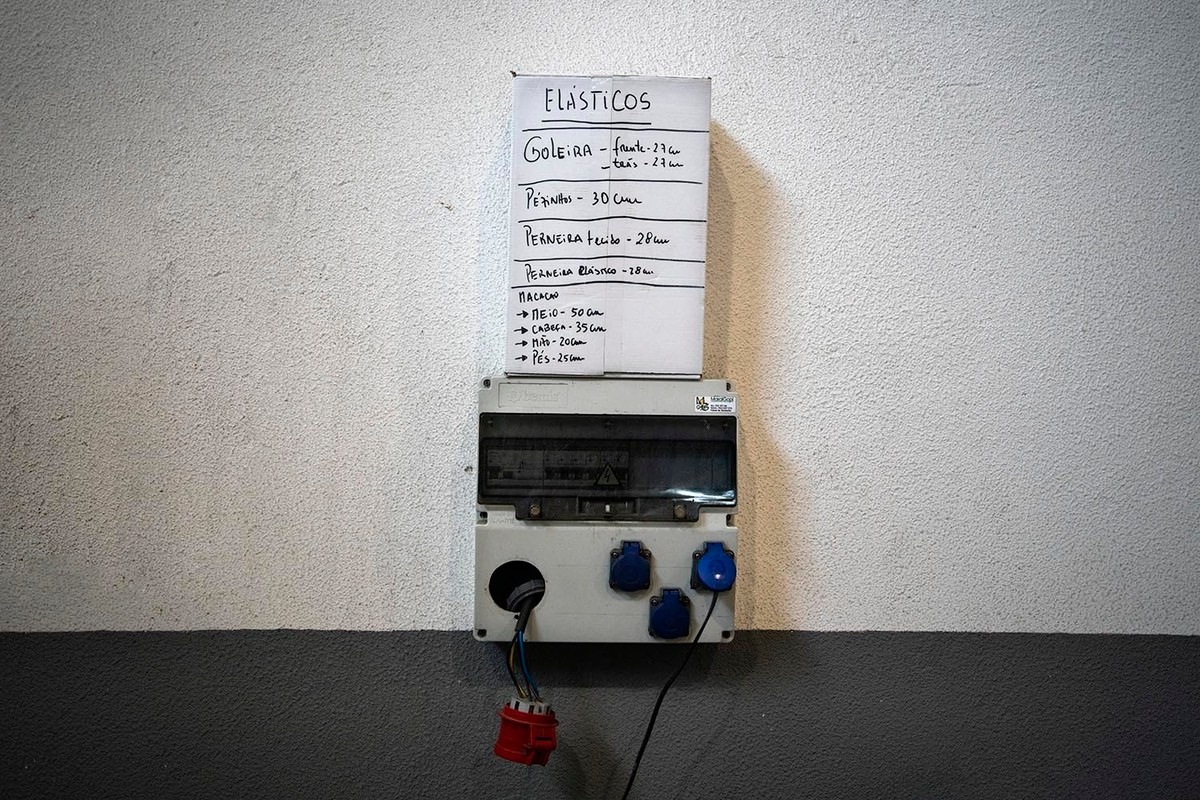 ELÁSTICOS
GOLEIRA - frente - 27cm
- trás - 27cm
PÉZINHOS - 30 cm
PERNEIRA tecido - 28cm
PERNEIRA elástico - 28cm
MACACAO
→ MEIO - 50cm
→ CABEÇA - 35cm
→ MÃO - 20cm
→ PÉS - 25cm
bemis
MaiaGopi